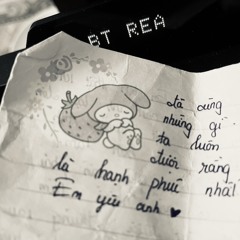 BT REA
đã cùng
những gì
ta luôn
rằng
là hạnh phúc nhất
Em yêu anh ♥